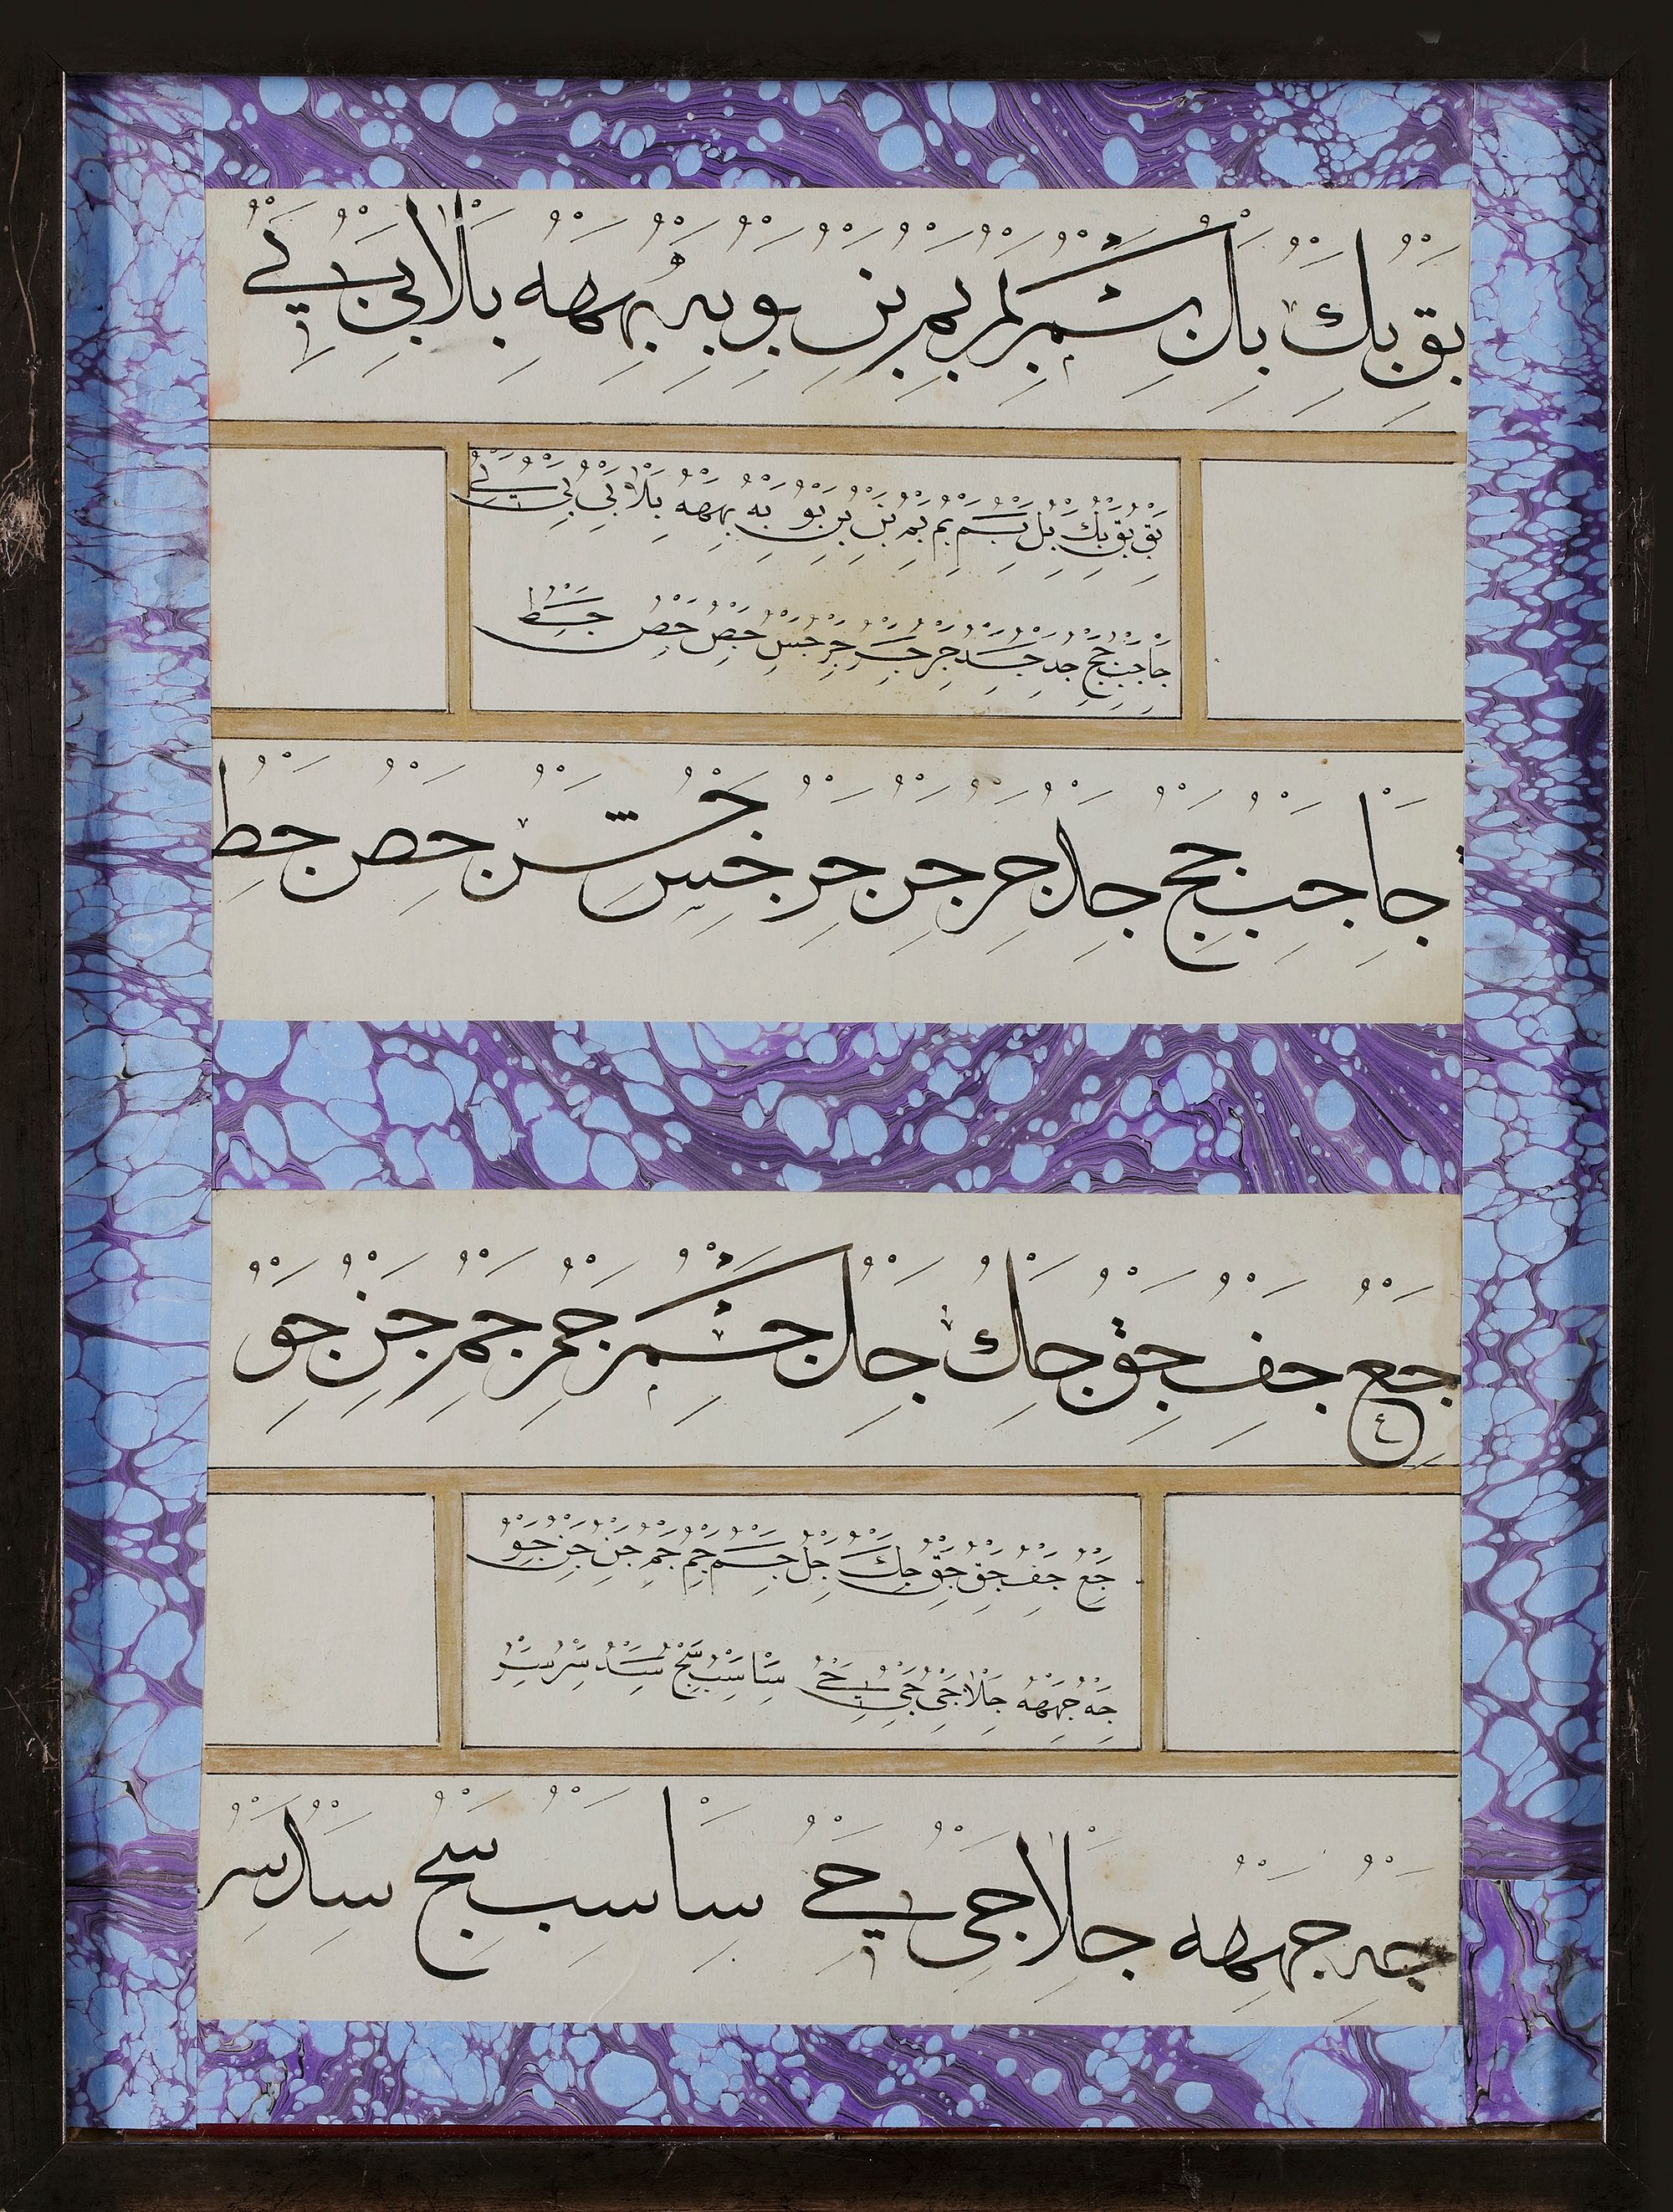 بق بك بل بسم بم بم بن بو به بههه بلا بى بے
بق بق بك بل بسم بم بم بن بن بو به بههه بلا بى بى بے
جا جب جج جد جد جر جر جس جص جص جط
جا جب جج جد جر جن جر جس جسن جص جط
جع جف جق جك جل جسم جم جم جن جو
جع جف جق جق جك جل جسم جم جم جن جن جو
جه جههه جلا جى جى جے سا سب سج سد سر سر
جه جههه جلا جى جے سا سب سج سد سر